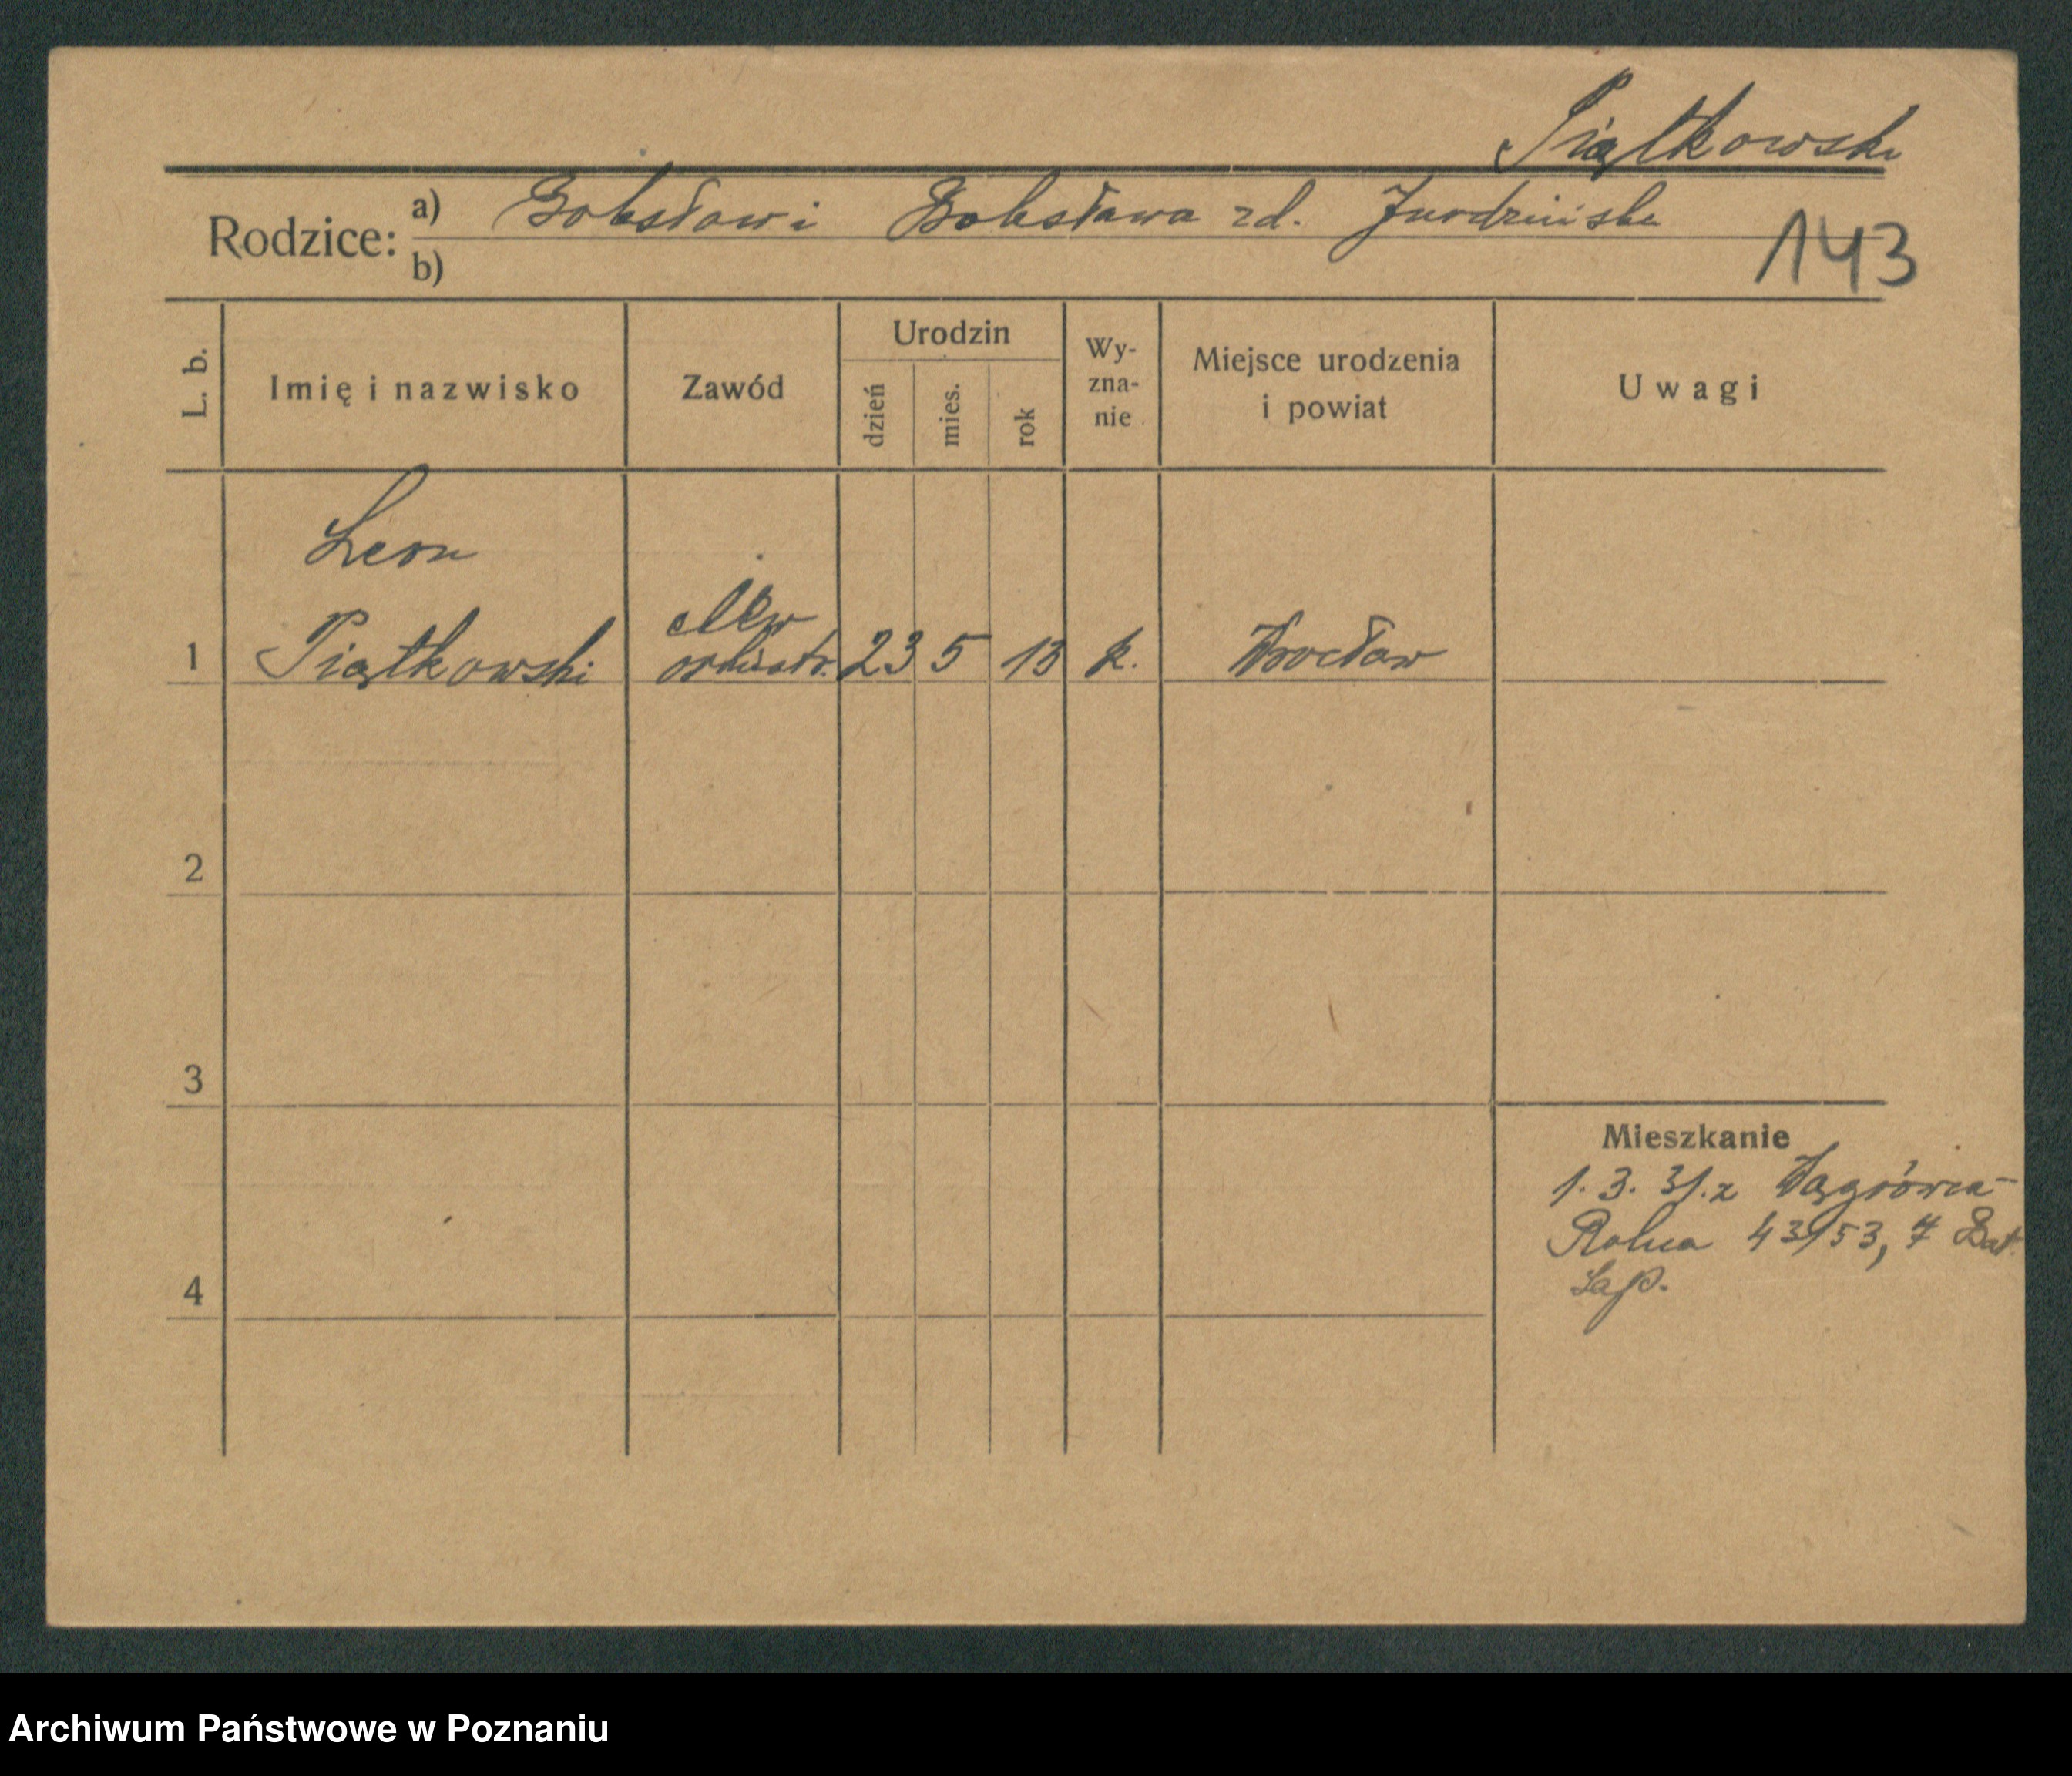 Piątkowski
Rodzice: a) Bolesław i Bolesława zd.
143
b)
L. b. Imię i nazwisko Zawód Urodzin dzień mies. rok Wy-zna-nie Miejsce urodzenia i powiat Uwagi
Leon
1 Piątkowski 23 5 13 k. Wrocław
2
3
Mieszkanie
1. 3. 31. z Wągrówca-
Rolna 43/53, 7 Bat.
4 Sap.
Archiwum Państwowe w Poznaniu